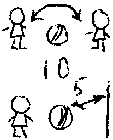 10
5